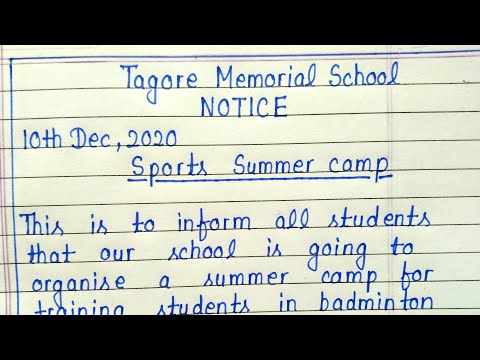 Tagore Memorial School
NOTICE
10th Dec, 2020
Sports Summer camp
This is to inform all students
that our school is going to
organise a summer camp for
training students in badminton